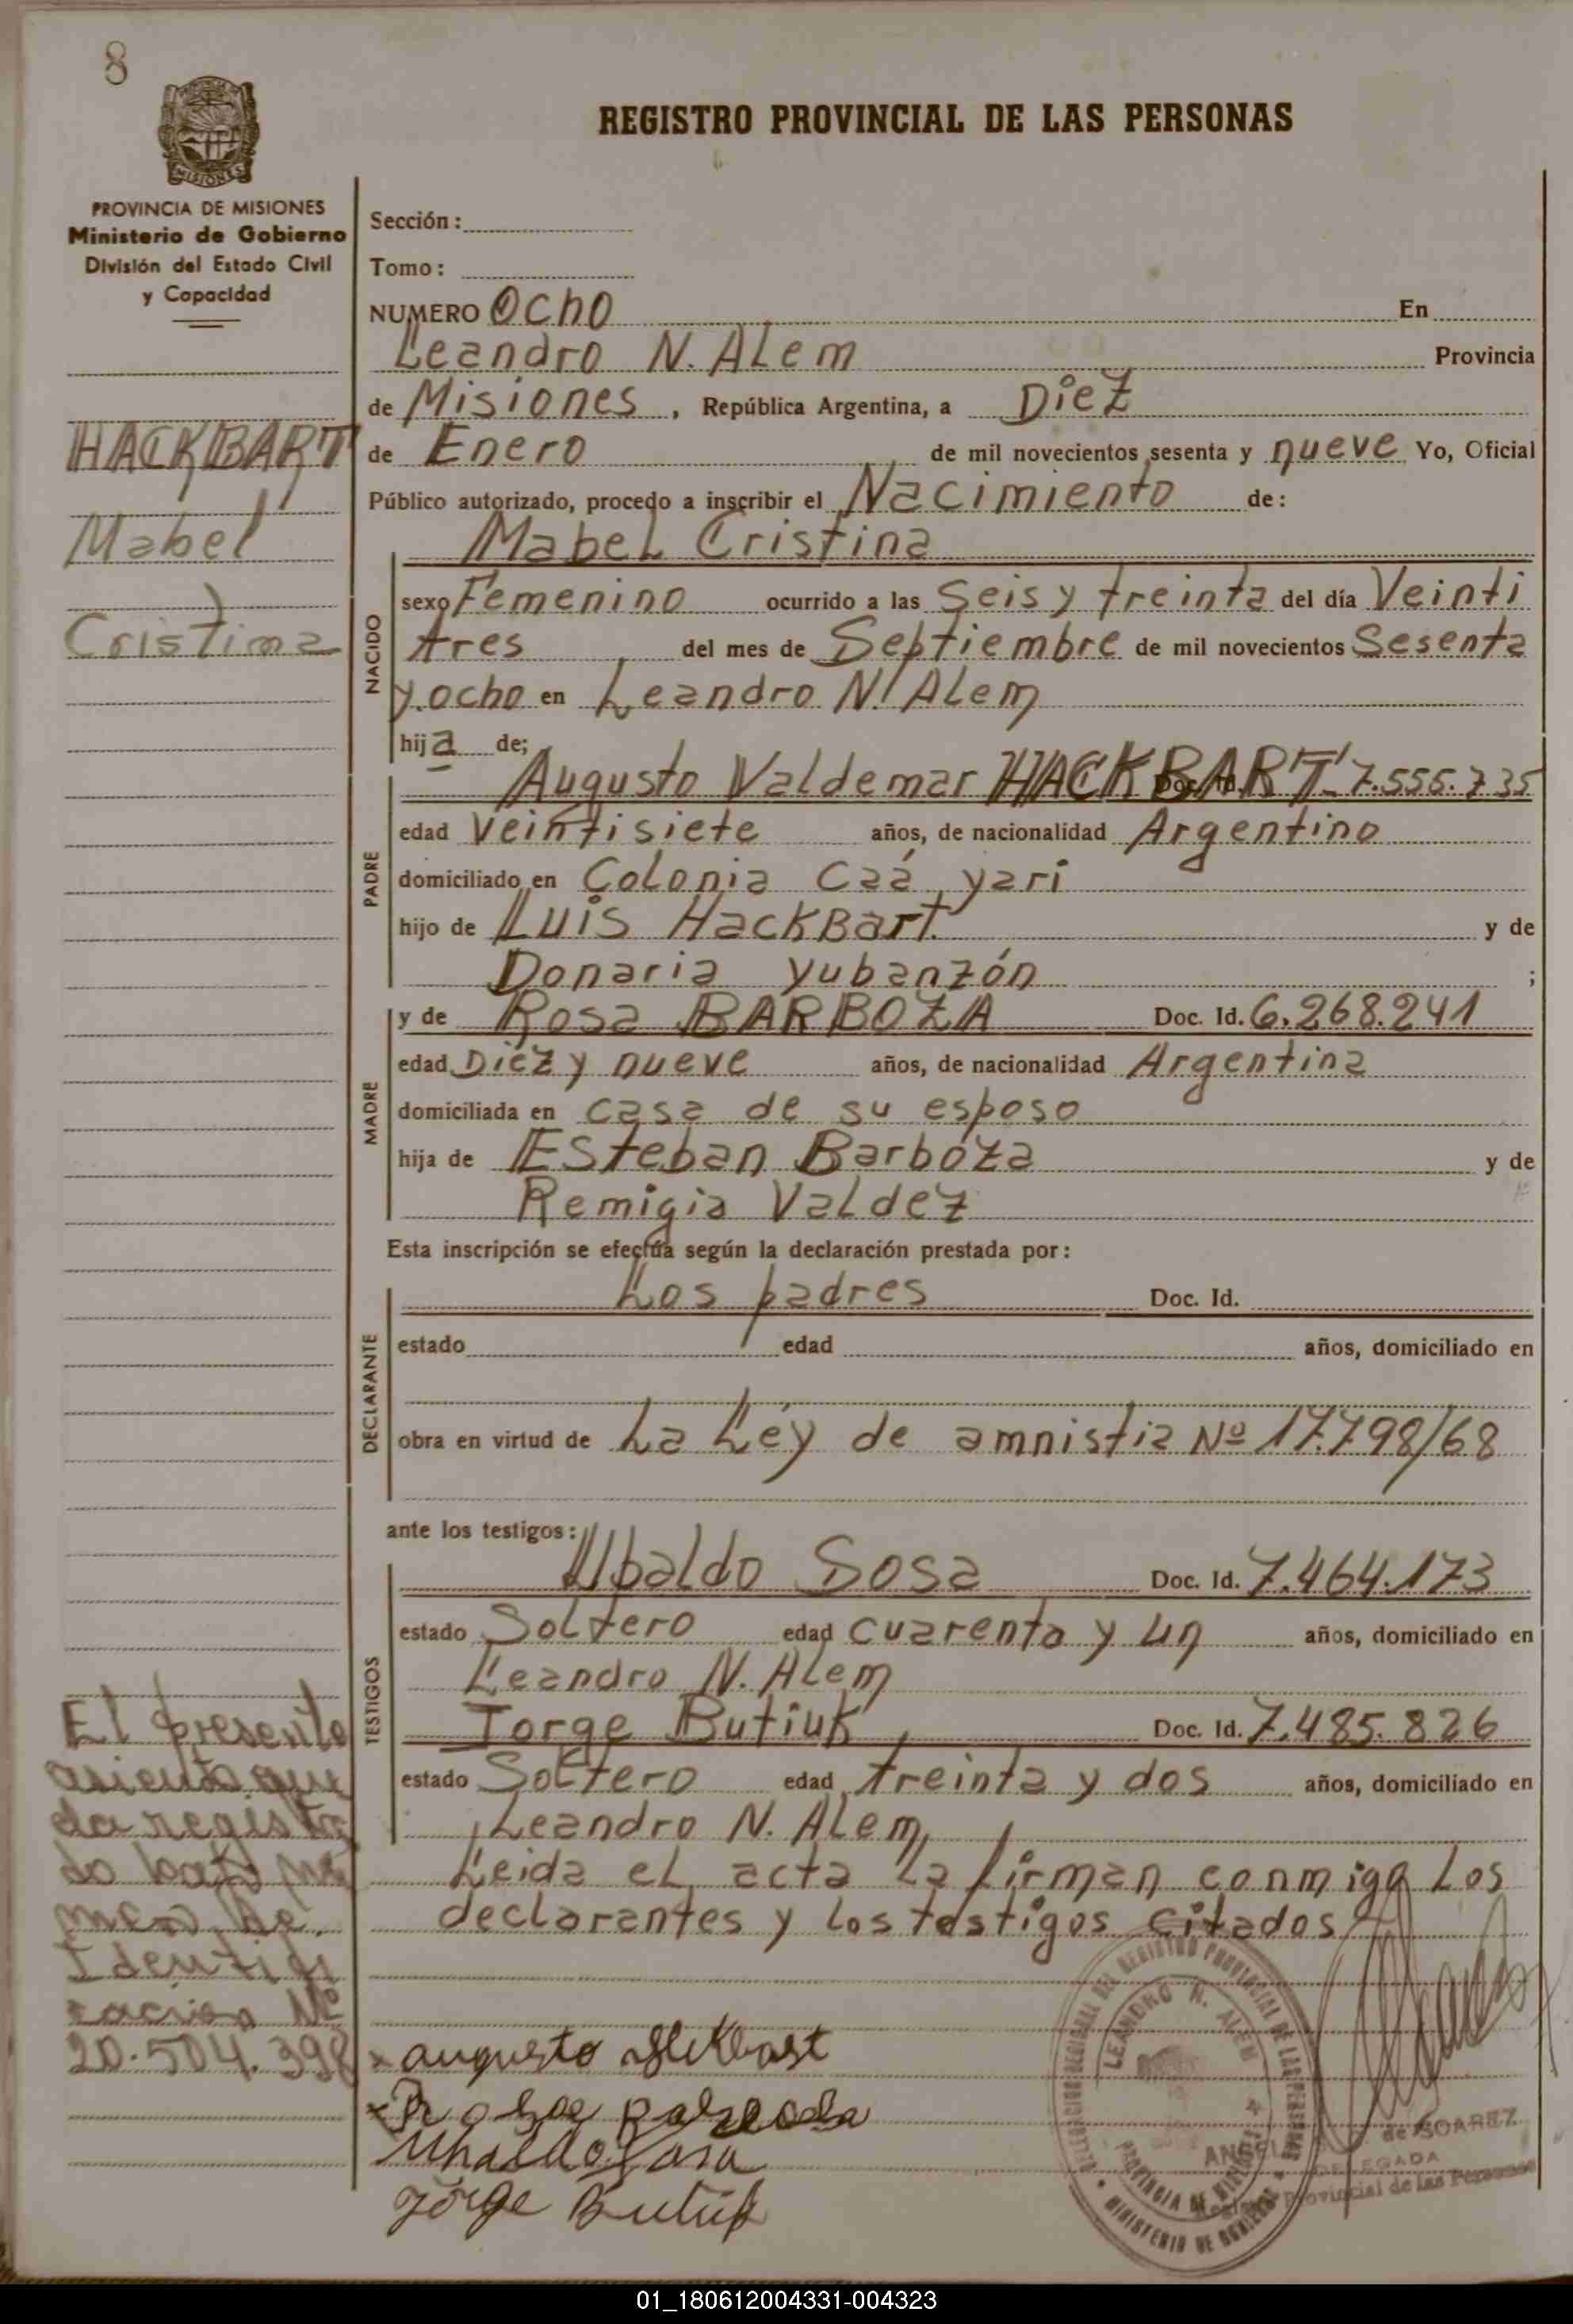 8
REGISTRO PROVINCIAL DE LAS PERSONAS
MISIONES
PROVINCIA DE MISIONES
Ministerio de Gobierno
División del Estado Civil
y Capacidad
HACKBART
Mabel
Cristina
El presente
asiento que
da registra
do bajo nú
mero de
Identifi
cacion Nº
20.504.398
Sección:
Tomo:
NUMERO Ocho En
Leandro N. Alem Provincia
de Misiones, República Argentina, a Diez
de Enero de mil novecientos sesenta y nueve Yo, Oficial
Público autorizado, procedo a inscribir el Nacimiento de:
Mabel Cristina
NACIDO
sexo Femenino ocurrido a las Seis y treinta del día Veinti
tres del mes de Septiembre de mil novecientos Sesenta
y ocho en Leandro N. Alem
hija de;
PADRE
Augusto Valdemar HACKBART Doc. Id. 7.556.735
edad Veintisiete años, de nacionalidad Argentino
domiciliado en Colonia Caá yari
hijo de Luis HackBart y de
Donaria Yubanzón ;
MADRE
y de Rosa BARBOZA Doc. Id. 6.268.241
edad Diez y nueve años, de nacionalidad Argentina
domiciliada en casa de su esposo
hija de Esteban Barboza y de
Remigia Valdez
Esta inscripción se efectúa según la declaración prestada por:
DECLARANTE
Los padres Doc. Id.
estado edad años, domiciliado en
obra en virtud de La Léy de amnistia Nº 17.798/68
ante los testigos:
TESTIGOS
Ubaldo Sosa Doc. Id. 7.464.173
estado Soltero edad cuarenta y un años, domiciliado en
Leandro N. Alem
Jorge Butiuk Doc. Id. 7.485.826
estado Soltero edad treinta y dos años, domiciliado en
Leandro N. Alem
Leida el acta la firman conmigo los
declarantes y los testigos citados
augusto
Ubaldo Sosa
Jorge Butiuk
DELEGACION REGIONAL DEL REGISTRO PROVINCIAL DE LAS PERSONAS
LEANDRO N. ALEM
PROVINCIA DE MISIONES
MINISTERIO DE GOBIERNO
de SOAREZ
DELEGADA
Registro Provincial de las Personas
01_180612004331-004323